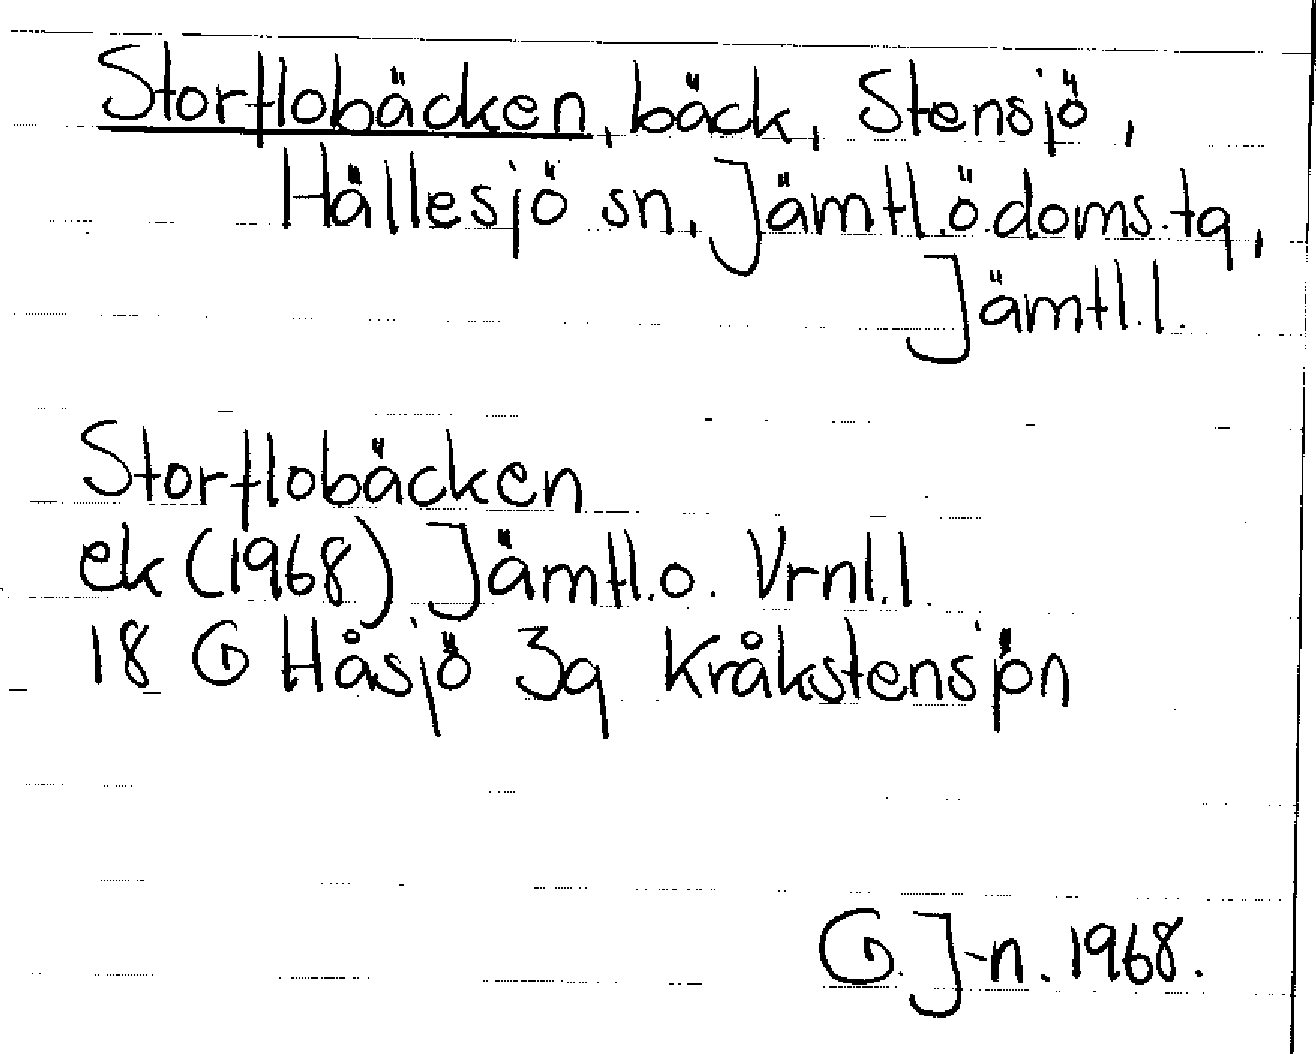 Storflobäcken, bäck, Stensjö,
Hällesjö sn, Jämtl.ö.doms.tg,
Jämtl.l.
Storflobäcken
ek (1968) Jämtl.o. Vrnl.l.
18 G Håsjö 3g Kråkstensjön
G. J-n. 1968.